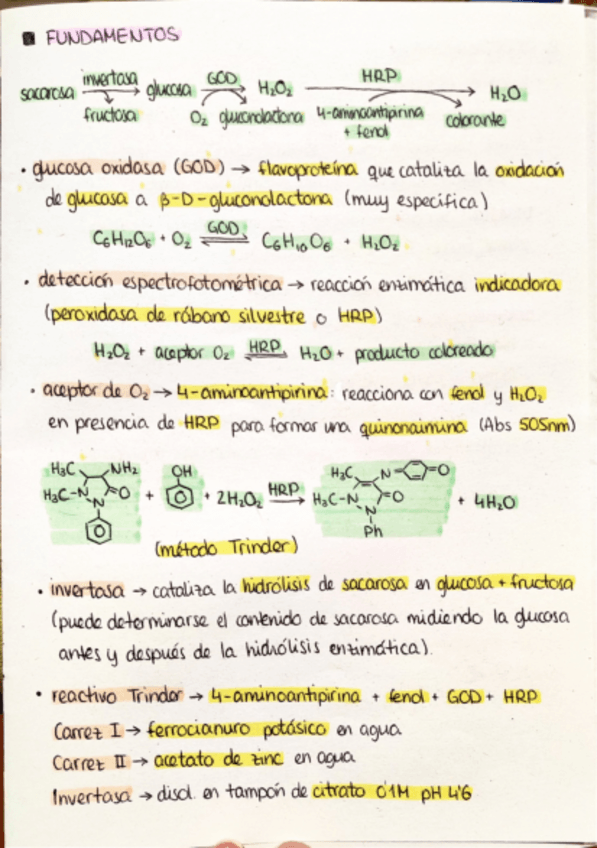 ■ FUNDAMENTOS
sacarosa invertasa → glucosa GOD → H₂O₂ HRP → H₂O
fructosa O₂ gluconolactona 4-aminoantipirina + fenol colorante
· glucosa oxidasa (GOD) → flavoproteína que cataliza la oxidación
de glucosa a β-D-gluconolactona (muy específica)
C₆H₁₂O₆ + O₂ ⇌ GOD C₆H₁₀O₆ + H₂O₂
· detección espectrofotométrica → reacción enzimática indicadora
(peroxidasa de rábano silvestre o HRP)
H₂O₂ + aceptor O₂ ⇌ HRP H₂O + producto coloreado
· aceptor de O₂ → 4-aminoantipirina: reacciona con fenol y H₂O₂
en presencia de HRP para formar una quinonaimina (Abs 505nm)
H₃C NH₂ OH H₃C N O
H₃C-N N O + + 2H₂O₂ HRP → H₃C-N N O + 4H₂O
Ph
(método Trinder)
· invertasa → cataliza la hidrólisis de sacarosa en glucosa + fructosa
(puede determinarse el contenido de sacarosa midiendo la glucosa
antes y después de la hidrólisis enzimática).
· reactivo Trinder → 4-aminoantipirina + fenol + GOD + HRP
Carrez I → ferrocianuro potásico en agua
Carrez II → acetato de zinc en agua
Invertasa → disol. en tampón de citrato 0'1M pH 4'6